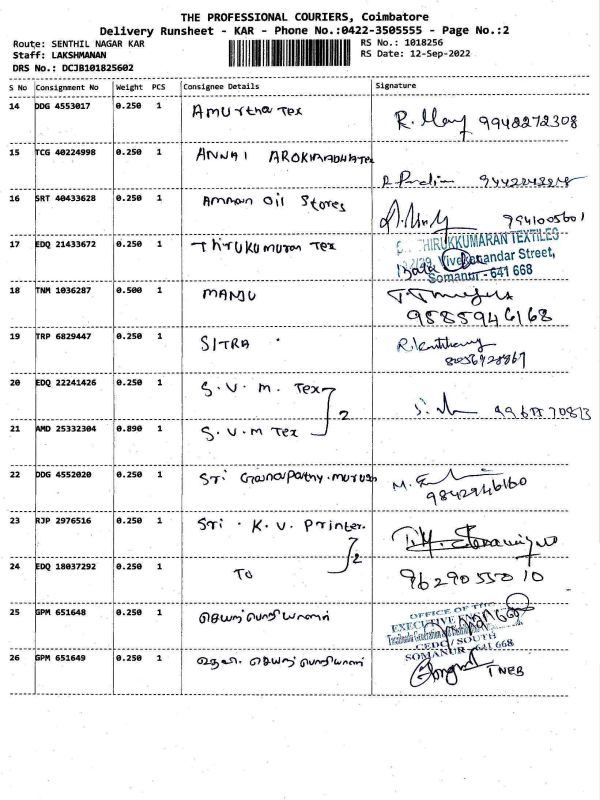 THE PROFESSIONAL COURIERS, Coimbatore
Delivery Runsheet - KAR - Phone No.:0422-3505555 - Page No.:2
Route: SENTHIL NAGAR KAR RS No.: 1018256
Staff: LAKSHMANAN RS Date: 12-Sep-2022
DRS No.: DCJB101825602
S No Consignment No Weight PCS Consignee Details Signature
14 DDG 4553017 0.250 1 Amurtha Tex R. 9948272308
15 TCG 40224998 0.250 1 ANNAI
16 SRT 40433628 0.250 1 Amman Oil Stores 9941005601
17 EDQ 21433672 0.250 1 Thirukumaran Tex
THIRUKKUMARAN TEXTILES
Vivekanandar Street,
Somanur - 641 668
18 TNM 1036287 0.500 1 MANJU
9885946168
19 TRP 6829447 0.250 1 SITRA
20 EDQ 22241426 0.250 1 S.V.M. Tex
2
21 AMD 25332304 0.890 1 S.V.M Tex
22 DDG 4552020 0.250 1 Sri Ganapathy. M.
9842946160
23 RJP 2976516 0.250 1 Sri. K. V. Printer.
2
24 EDQ 18037292 0.250 1 To 9629055010
25 GPM 651648 0.250 1 செயற்பொறியாளர்
OFFICE OF THE
EXECUTIVE
CEDC / SOUTH
SOMANUR - 641 668
26 GPM 651649 0.250 1 செயற்பொறியாளர் TNEB